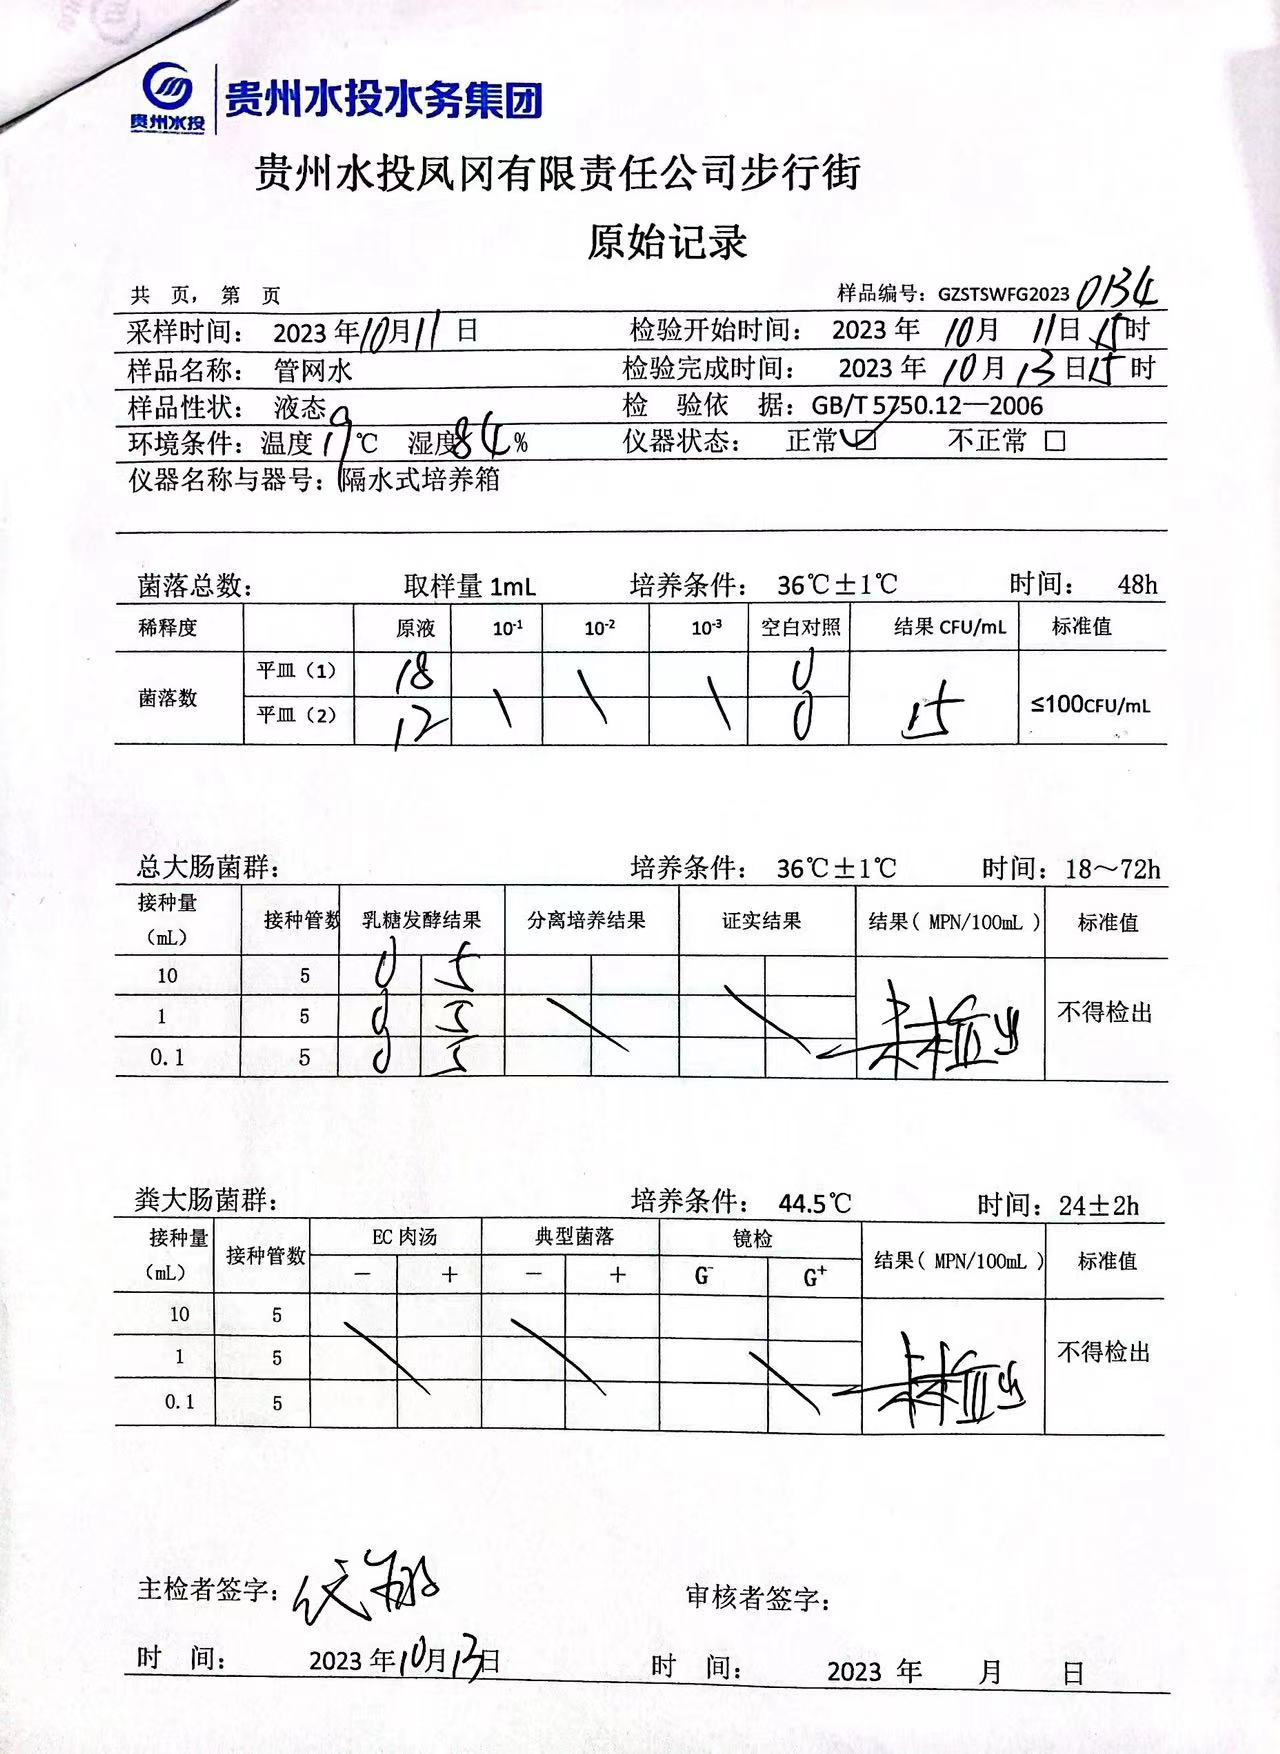 贵州水投 贵州水投水务集团
贵州水投凤冈有限责任公司步行街
原始记录
共 页，第 页 样品编号：GZSTSWFG20230134
采样时间： 2023 年10月11日 检验开始时间： 2023 年 10月 11日 15时
样品名称： 管网水 检验完成时间： 2023 年 10月 13日 15时
样品性状： 液态 检 验依 据：GB/T 5750.12—2006
环境条件：温度19℃ 湿度84% 仪器状态： 正常☑ 不正常□
仪器名称与器号：隔水式培养箱
菌落总数： 取样量 1mL 培养条件： 36℃±1℃ 时间： 48h
稀释度 原液 10⁻¹ 10⁻² 10⁻³ 空白对照 结果 CFU/mL 标准值
菌落数 平皿（1） 18 \ \ \ 0 15 ≤100CFU/mL
平皿（2） 12 0
总大肠菌群： 培养条件： 36℃±1℃ 时间：18～72h
接种量（mL） 接种管数 乳糖发酵结果 分离培养结果 证实结果 结果（MPN/100mL） 标准值
10 5 0 5 未检出 不得检出
1 5 0 5
0.1 5 0 5
粪大肠菌群： 培养条件： 44.5℃ 时间：24±2h
接种量（mL） 接种管数 EC 肉汤 典型菌落 镜检 结果（MPN/100mL） 标准值
— + — + G⁻ G⁺
10 5 未检出 不得检出
1 5
0.1 5
主检者签字： 审核者签字：
时 间： 2023 年10月13日 时 间： 2023 年 月 日